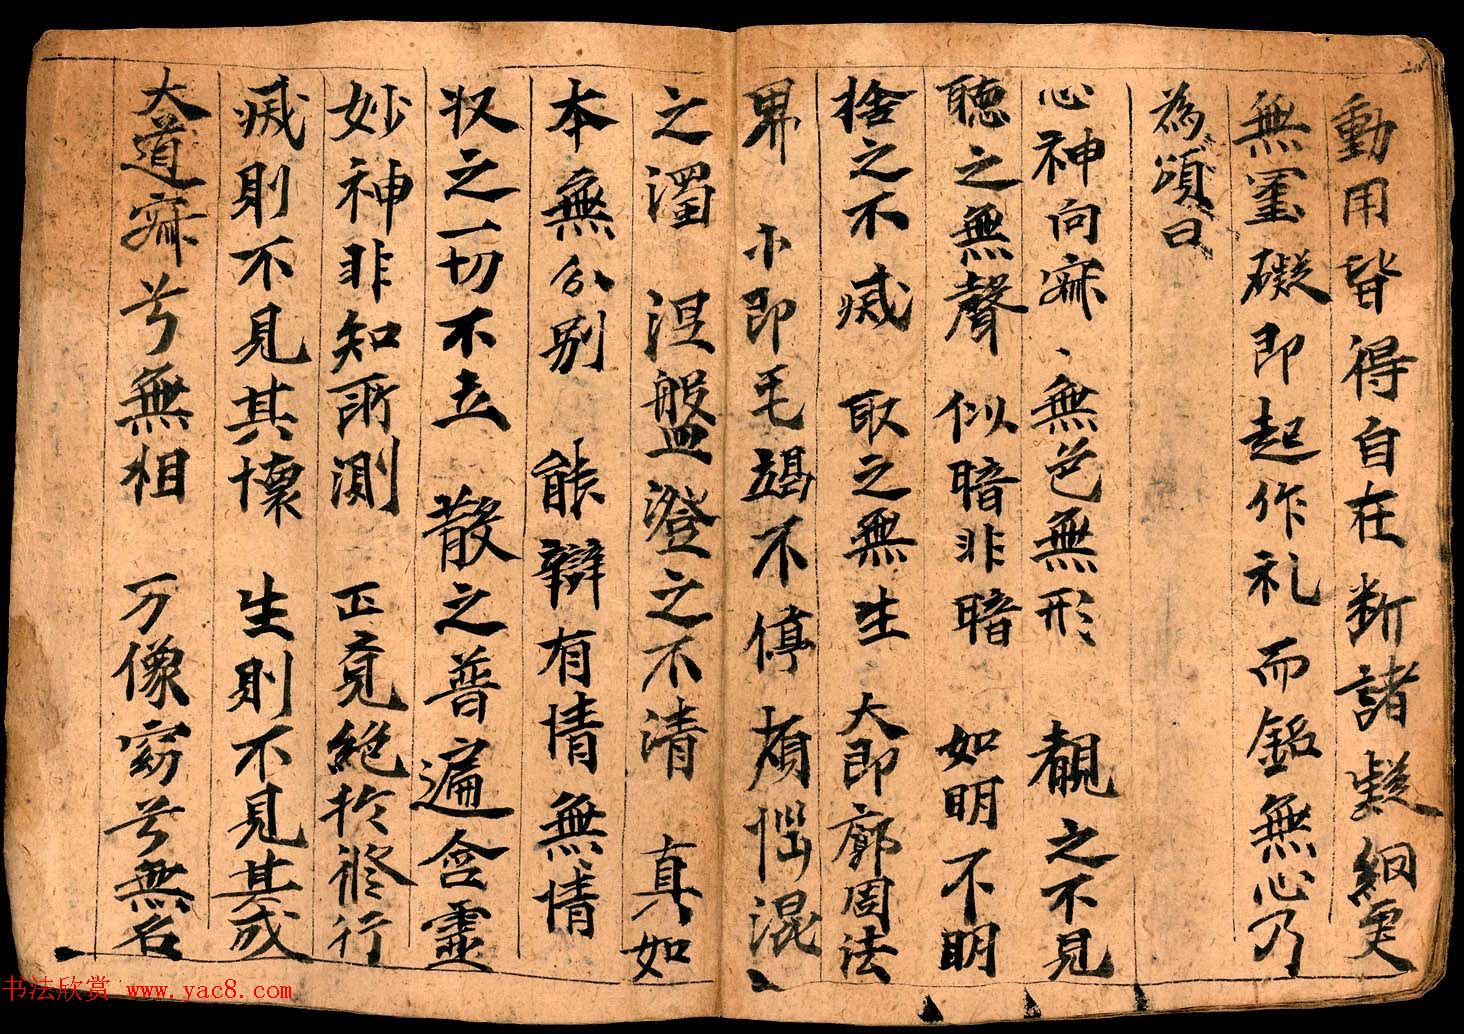 動用皆得自在斷諸疑網更
無罣礙即起作礼而銘無心乃
為頌曰
心神向寂、無色無形 覩之不見
聽之無聲 似暗非暗 如明不明
捨之不滅 取之無生 大即廓周法
界 小即毛竭不停 煩惱混
之濁 涅盤澄之不清 真如
本無分別 能辯有情無情
収之一切不立 散之普遍含靈
妙神非知所測 正覓絕於修行
滅則不見其懷 生則不見其成
大道寂号無相 万像窈号無名
书法欣赏 www.yac8.com